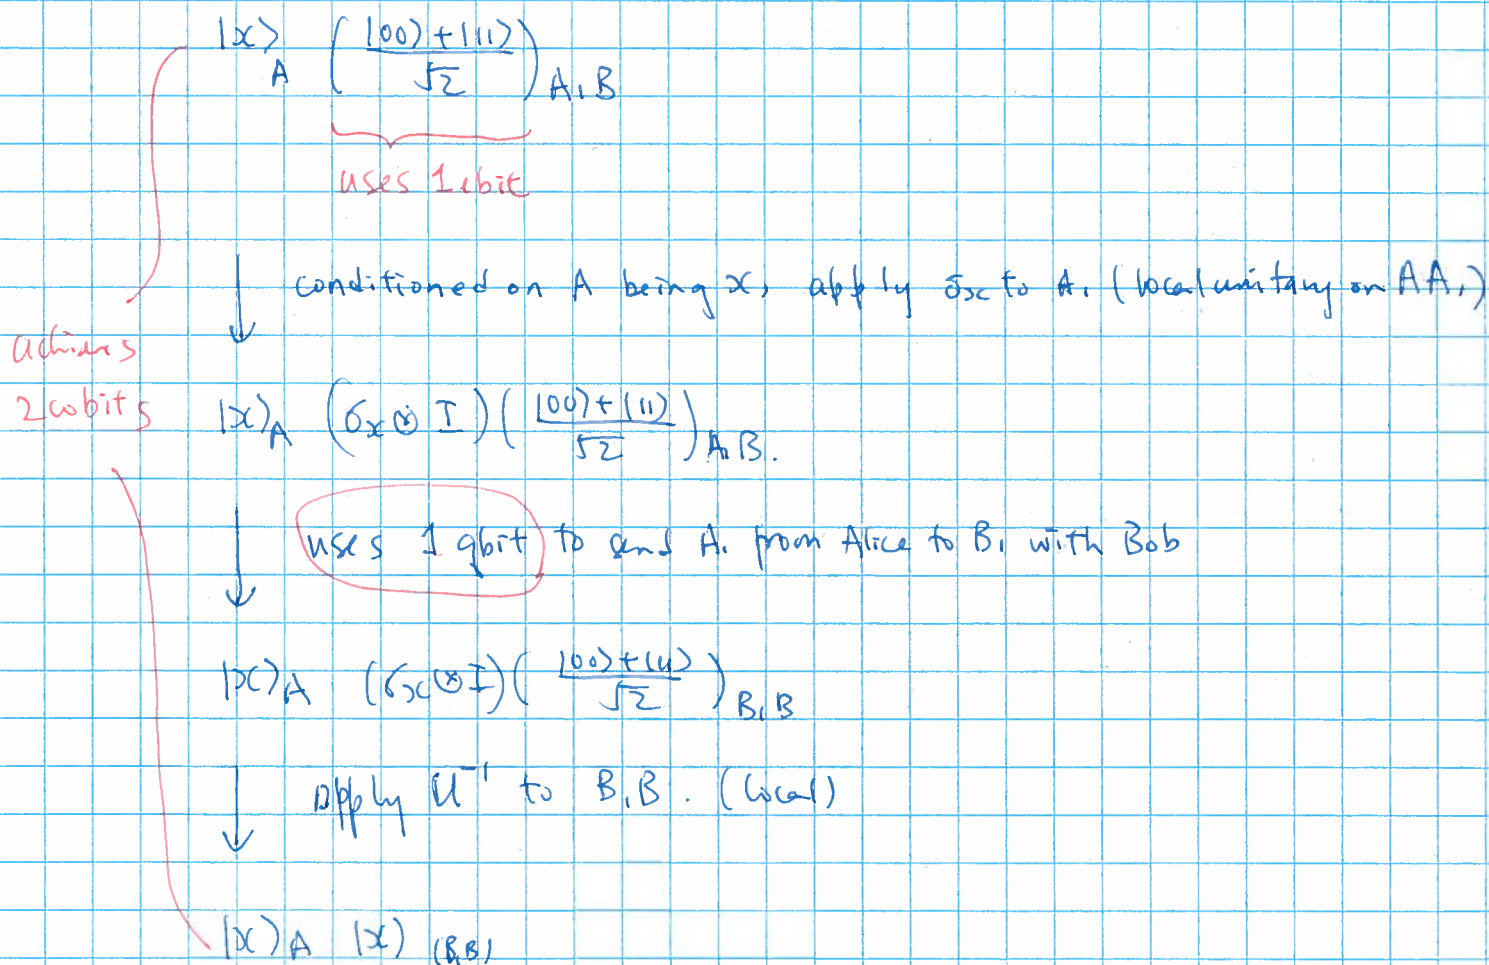 |x⟩_A ( (|00⟩+|11⟩)/√2 )_{A₁B}
uses 1 ebit
conditioned on A being x, apply σ_x to A₁ (local unitary on AA₁)
achieves
2 cobits
|x⟩_A (σ_x⊗I)( (|00⟩+|11⟩)/√2 )_{A₁B}.
uses 1 qbit to send A₁ from Alice to B₁ with Bob
|x⟩_A (σ_x⊗I)( (|00⟩+|11⟩)/√2 )_{B₁B}
apply U⁻¹ to B₁B. (local)
|x⟩_A |x⟩_{(B₁B)}